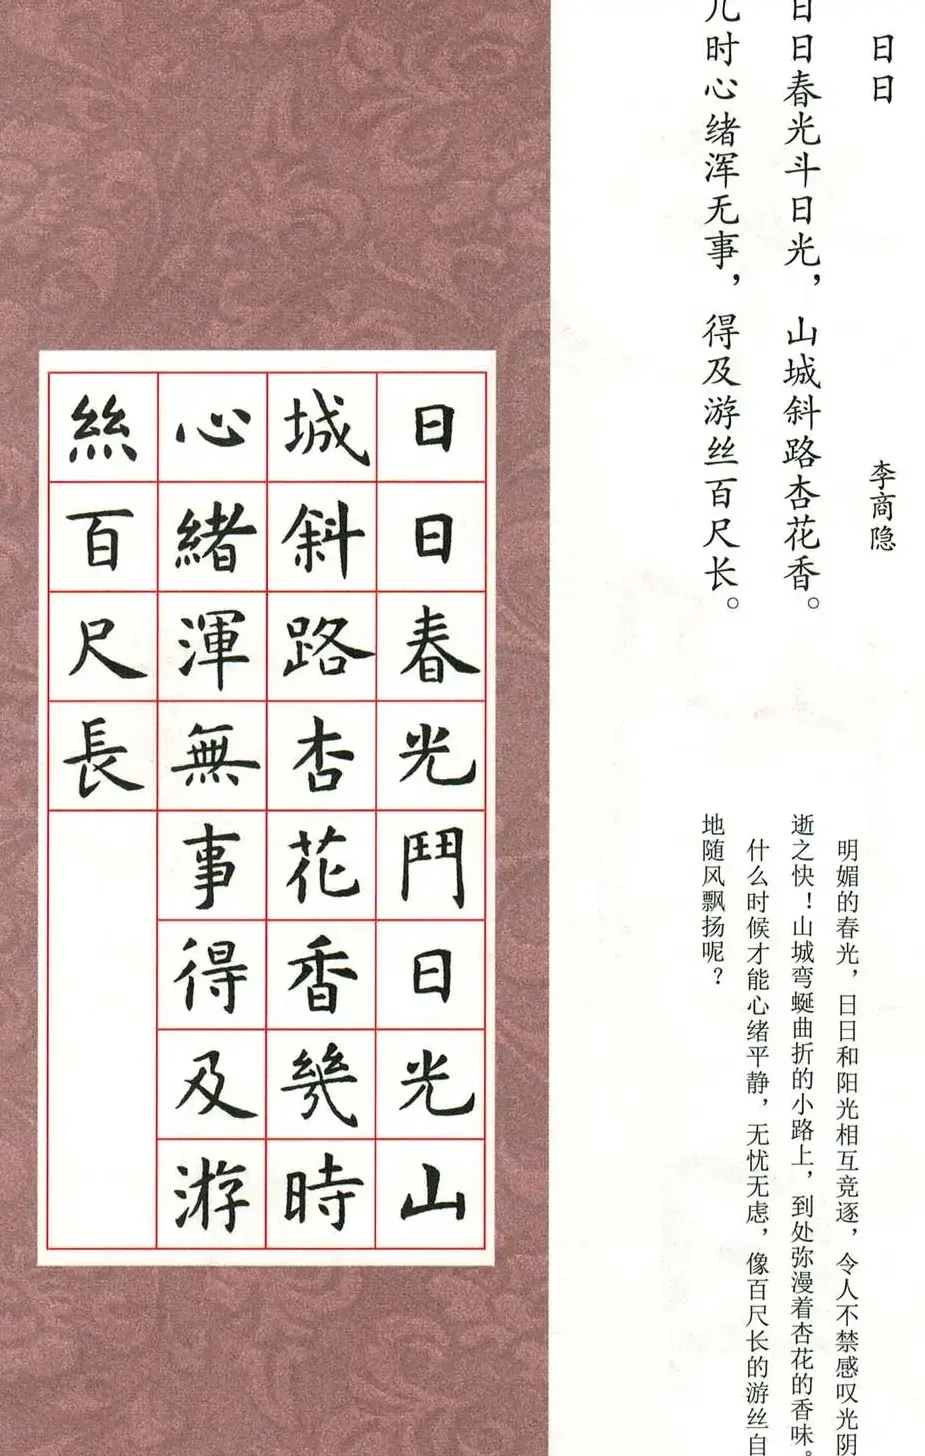 日日
李商隐
日日春光斗日光，山城斜路杏花香。
几时心绪浑无事，得及游丝百尺长。
明媚的春光，日日和阳光相互竞逐，令人不禁感叹光阴
逝之快！山城弯蜒曲折的小路上，到处弥漫着杏花的香味。
什么时候才能心绪平静，无忧无虑，像百尺长的游丝自
地随风飘扬呢？
日日春光鬥日光山
城斜路杏花香幾時
心緒渾無事得及游
絲百尺長